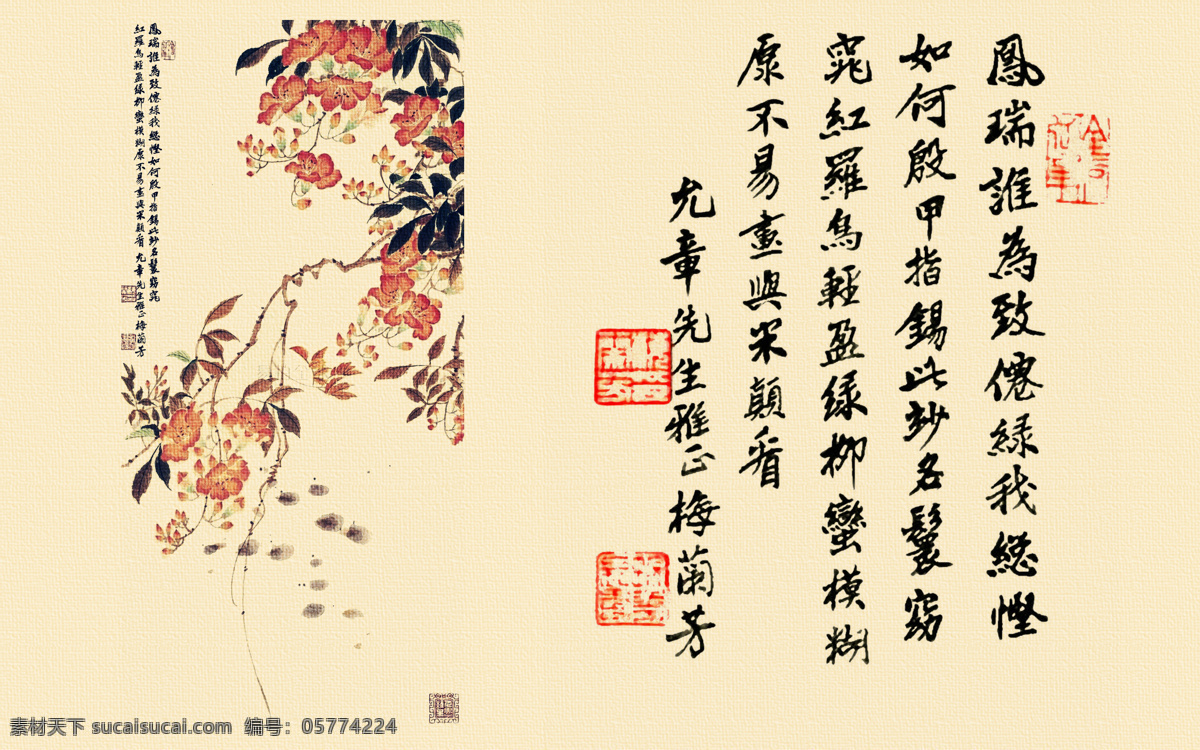 鳳瑞誰為致僊緣我總慳
如何殷甲指錫此妙名鬟窈
窕紅羅鳥輕盈緑柳蠻模糊
原不易畫與米顛看
允章先生雅正梅蘭芳
鳳瑞誰為致僊緣我總慳如何殷甲指錫此妙名鬟窈窕
紅羅鳥輕盈緑柳蠻模糊原不易畫與米顛看 允章先生雅正 梅蘭芳
素材天下 sucaisucai.com 编号：05774224